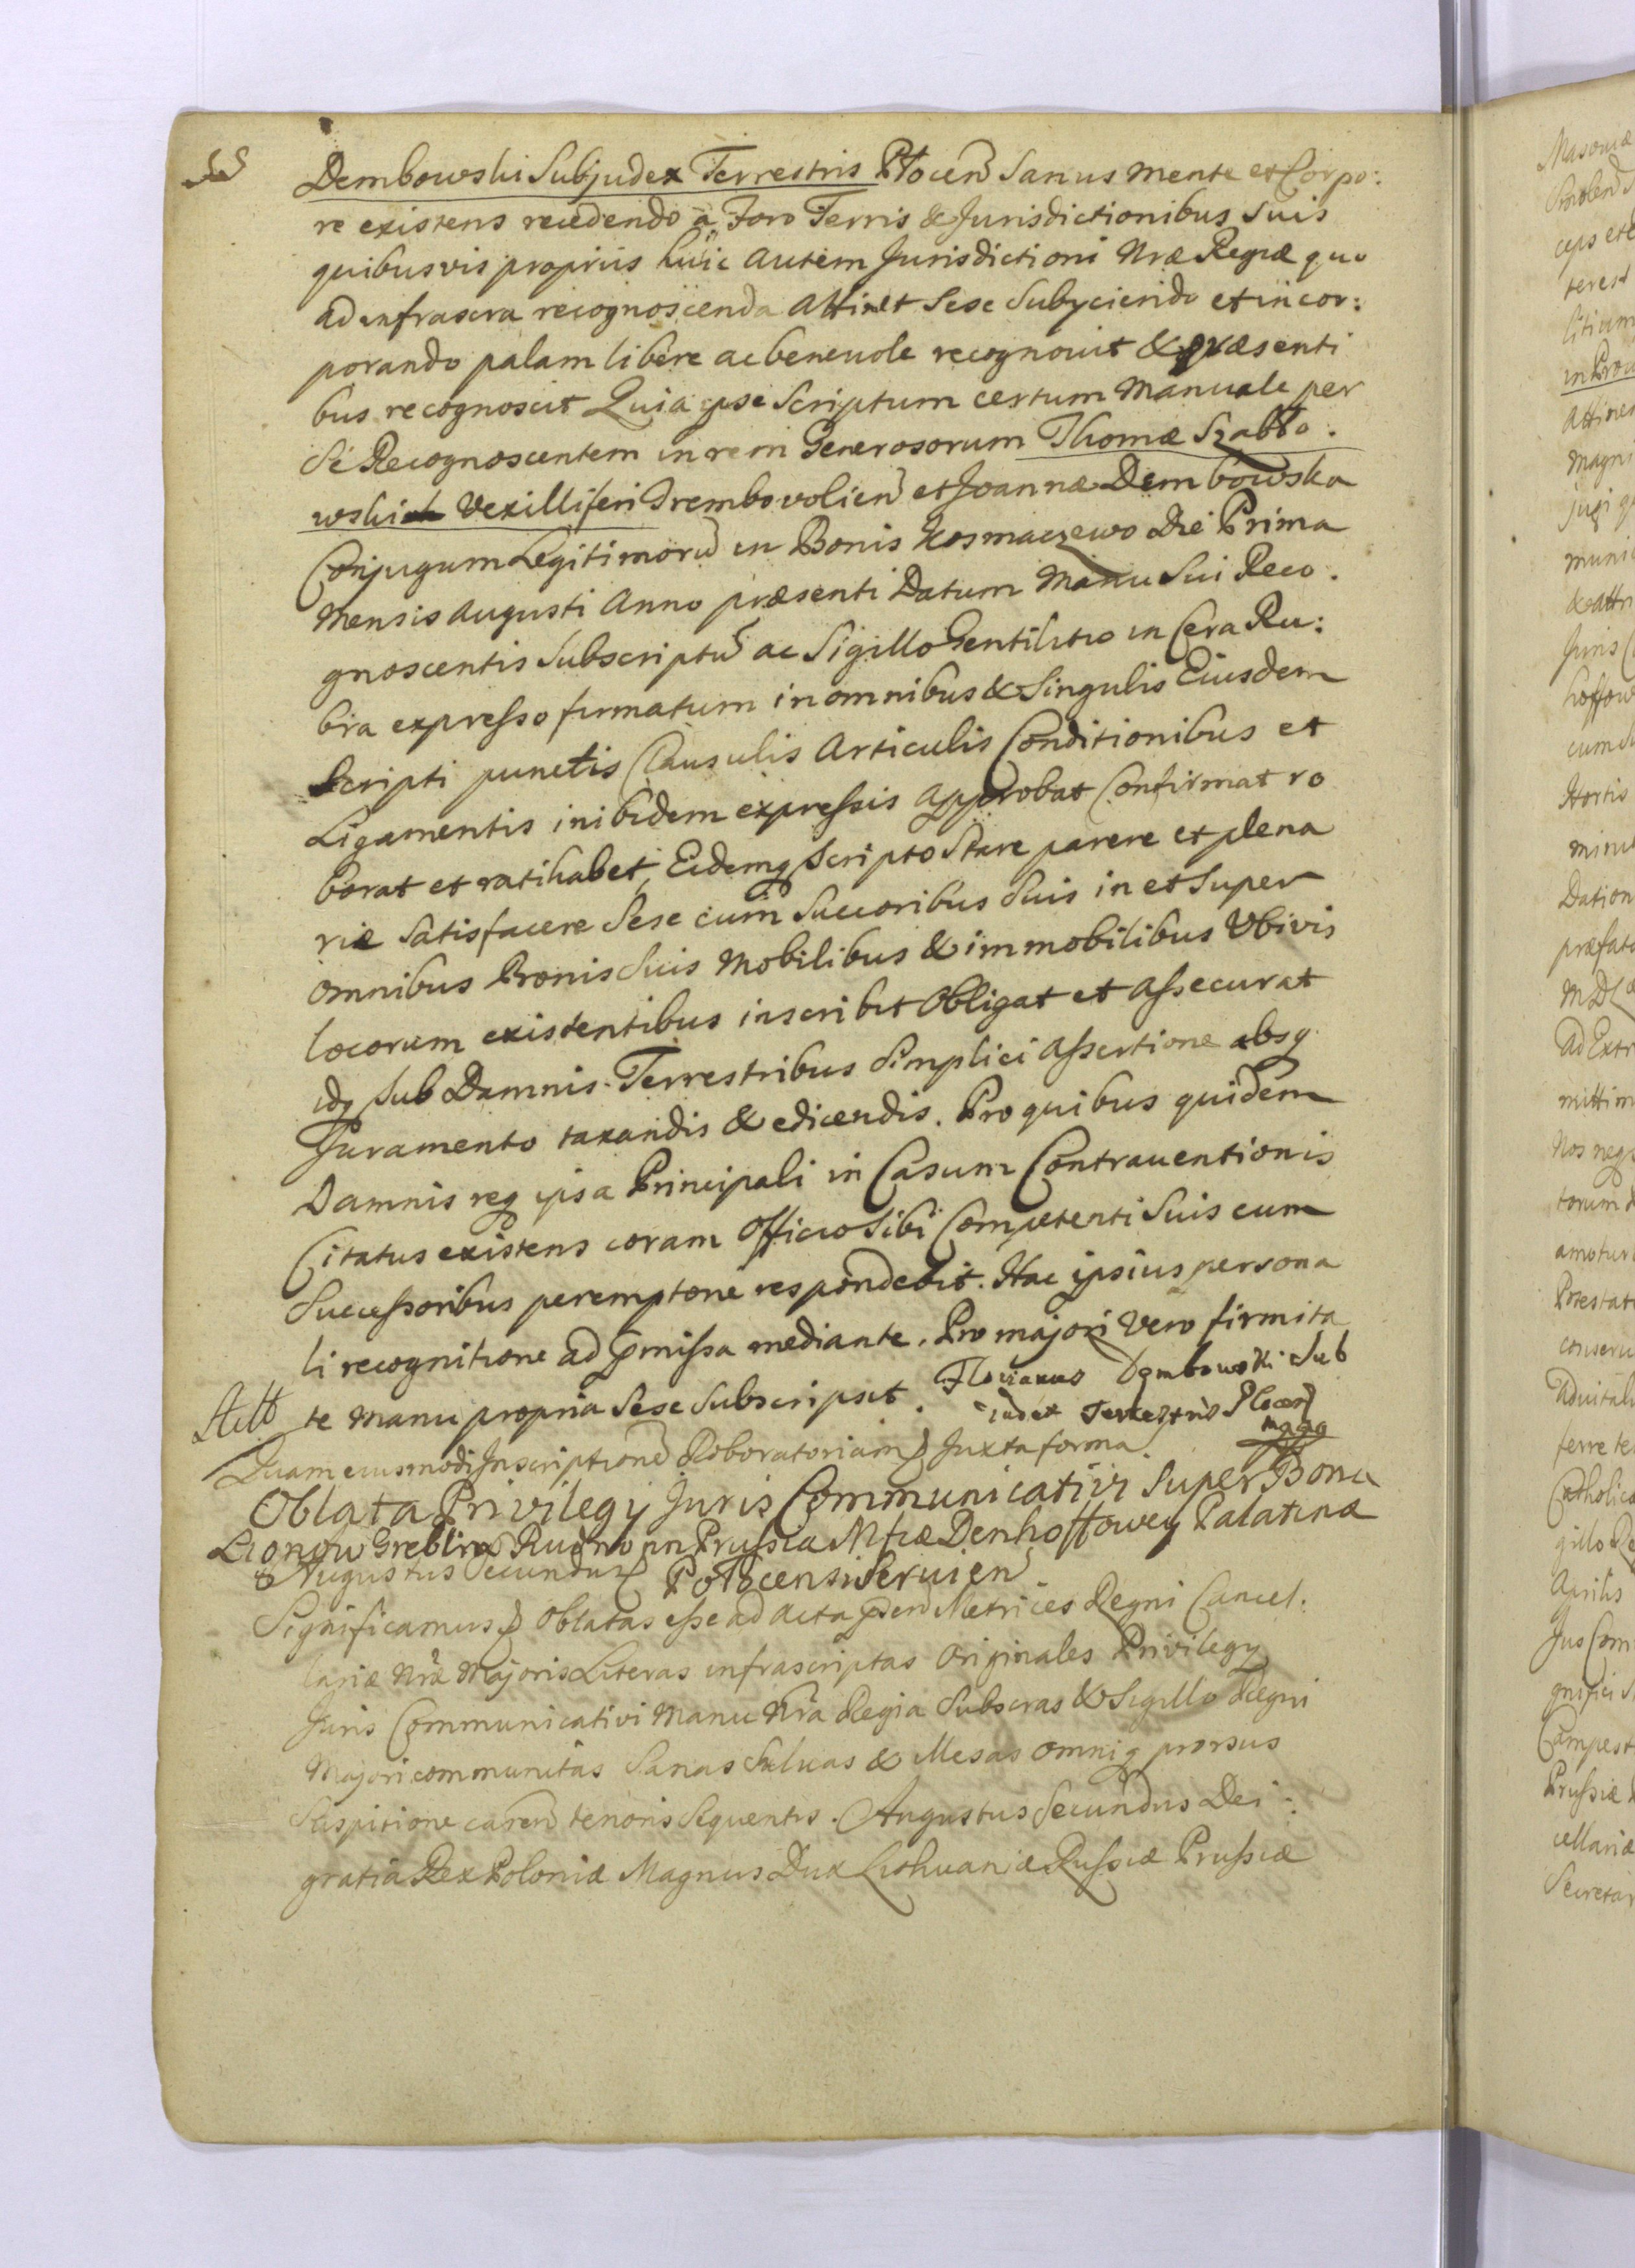 Dembowski Subjudex Terrestris Płocen Sanus mente et Corpo:
re existens recedendo à Foro Terris & Jurisdictionibus Suis
quibusvis propriis huic autem Jurisdictioni Nræ Regiæ quo
ad infrascra recognoscenda attinet Sese Subyciendo et incor:
porando palam libere ac beneuole recognouit & præsenti
bus recognoscit Quia ipse Scriptum certum manuale per
Se Recognoscentem in rem Generosorum Thomæ Szabło.
wski Vexilliferi Trembovolien et Joannæ Dembowska
Conjugum Legitimorũ in Bonis Kosmaczewo Die Prima
Mensis Augusti Anno præsenti Datum Manu Sui Reco.
gnoscentis Subscriptũ ac Sigillo Gentilitio in Cera Ru:
bra expresso firmatum in omnibus & Singulis Eiusdem
Scripti punctis Clausulis Articulis Conditionibus et
Ligamentis inibidem expressis approbat Confirmat ro
borat et ratihabet, Eidemq Scripto Stare parere et plena
riæ Satisfacere Sese cum Succoribus Suis in et Super
omnibus Bonis Suis Mobilibus & immobilibus Vbivis
locorum existentibus inscribit Obligat et assecurat
idq Sub Damnis Terrestribus Simplici assertione absq
Juramento taxandis & edicendis. Pro quibus quidem
Damnis req ipsa Principali in Casum Contrauentionis
Citatus existens coram Officio Sibi Competenti Suis cum
Successoribus peremptorie respondebit. Hac ipsius persona
li recognitione ad pmissa mediante. Pro majori Vero firmita
te manu propria Sese Subscripsit. Florianus Dembowski Sub
iudex Terrestris Plocen
Quam eiusmodi Inscriptione Roboratoriam Juxta forma.
Oblata Privilegy Juris Communicativi Super Bona
Greblin Rudno in Prussia Mficæ Denhoffowey Palatinæ
Augustus Secundus Połocensi Seruien
Significamus Oblatas esse ad Acta pden Metrices Regni Cancel.
lariæ Nræ Majoris Literas infrascriptas originales Privilegy
Juris Communicativi Manu Nra Regia Subscras & Sigillo Regni
Majori communitas Sanas Saluas & Illesas omniq prorsus
Suspitione caren tenoris Sequentis. Augustus Secundus Dei
gratia Rex Poloniæ Magnus Dux Lithuaniæ Russiæ Prussiæ